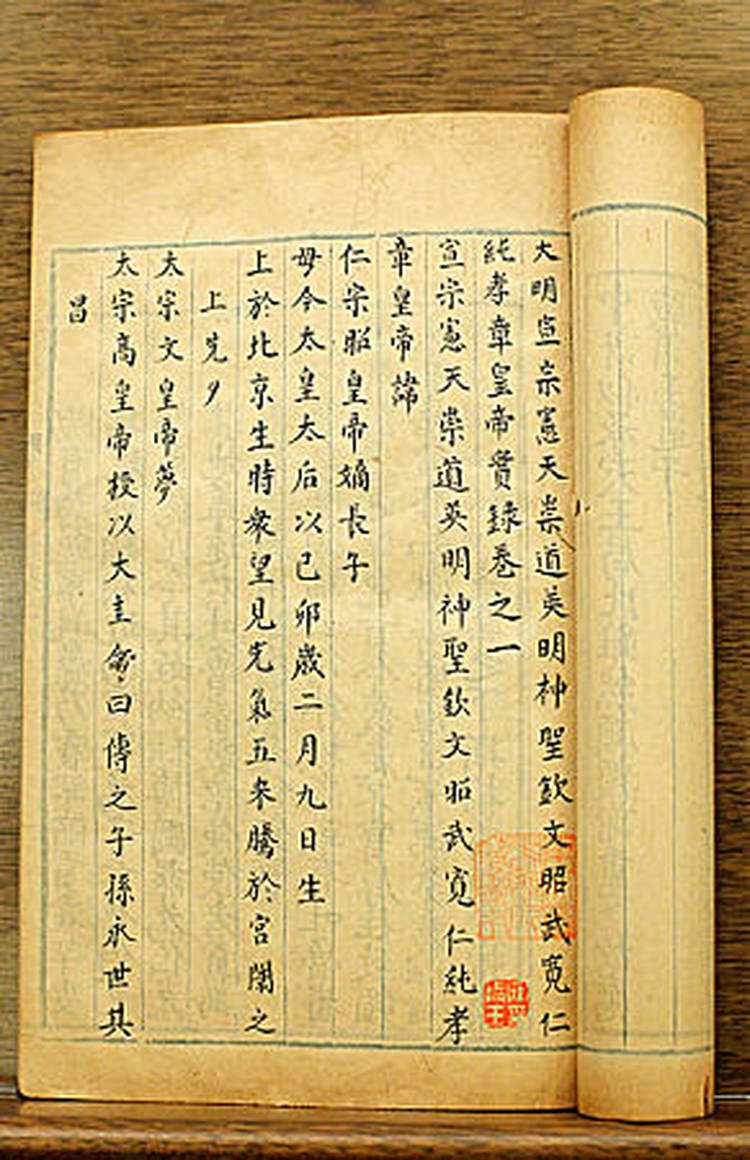 大明宣宗憲天崇道英明神聖欽文昭武寬仁
純孝章皇帝實錄卷之一
宣宗憲天崇道英明神聖欽文昭武寬仁純孝
章皇帝諱
仁宗昭皇帝嫡長子
母今太皇太后以己卯歲二月九日生
上於北京生時衆望見光氣五采騰於宮闈之
上先夕
太宗文皇帝夢
太宗高皇帝授以大圭命曰傳之子孫永世其
昌